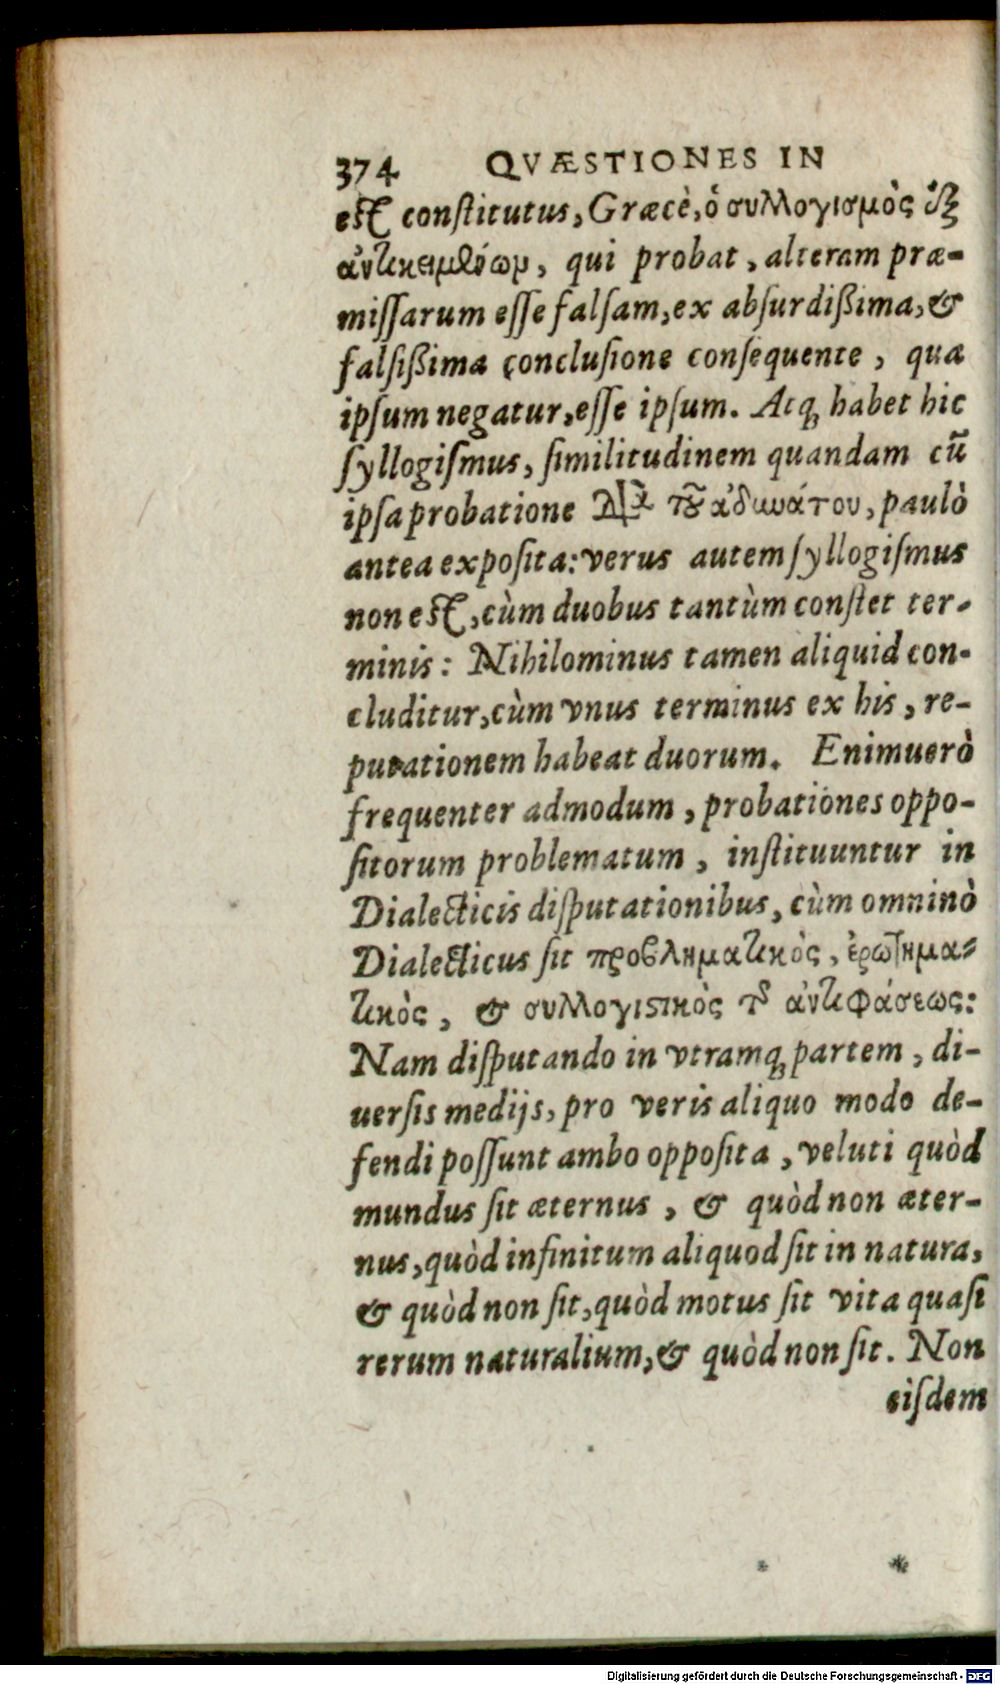 374 QVÆSTIONES IN
est constitutus, Græcè, ὁ συλλογισμὸς ἐξ
ἀντικειμένωμ, qui probat, alteram præ-
missarum esse falsam, ex absurdißima, &
falsißima conclusione consequente, qua
ipsum negatur, esse ipsum. Atq; habet hic
syllogismus, similitudinem quandam cũ
ipsa probatione διὰ τοῦ ἀδυνάτου, paulò
antea exposita: verus autem syllogismus
non est, cùm duobus tantùm constet ter-
minis: Nihilominus tamen aliquid con-
cluditur, cùm vnus terminus ex his, re-
putationem habeat duorum. Enimuerò
frequenter admodum, probationes oppo-
sitorum problematum, instituuntur in
Dialecticis disputationibus, cùm omninò
Dialecticus sit προβληματικὸς, ἐρωτημα-
τικὸς, & συλλογιστικὸς τῆς ἀντιφάσεως:
Nam disputando in vtramq; partem, di-
uersis medijs, pro veris aliquo modo de-
fendi possunt ambo opposita, veluti quòd
mundus sit æternus, & quòd non æter-
nus, quòd infinitum aliquod sit in natura,
& quòd non sit, quòd motus sit vita quasi
rerum naturalium, & quòd non sit. Non
eisdem
Digitalisierung gefördert durch die Deutsche Forschungsgemeinschaft - DFG